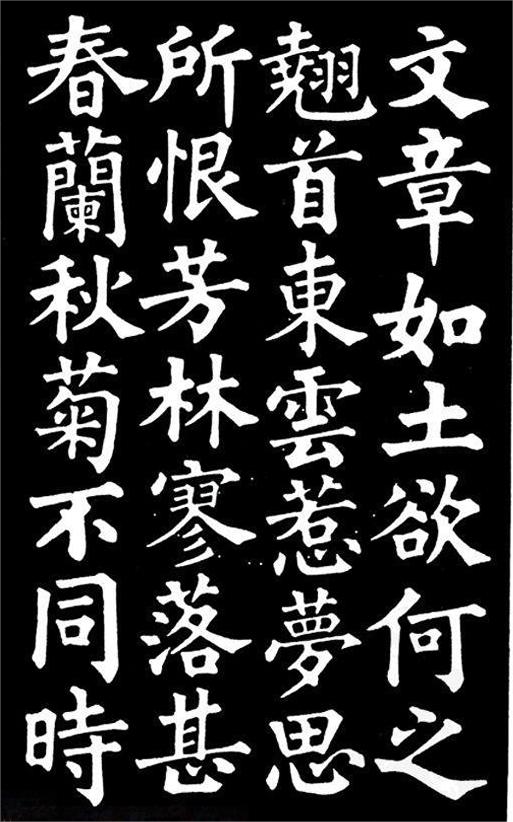 文章如土欲何之
翹首東雲惹夢思
所恨芳林寥落甚
春蘭秋菊不同時